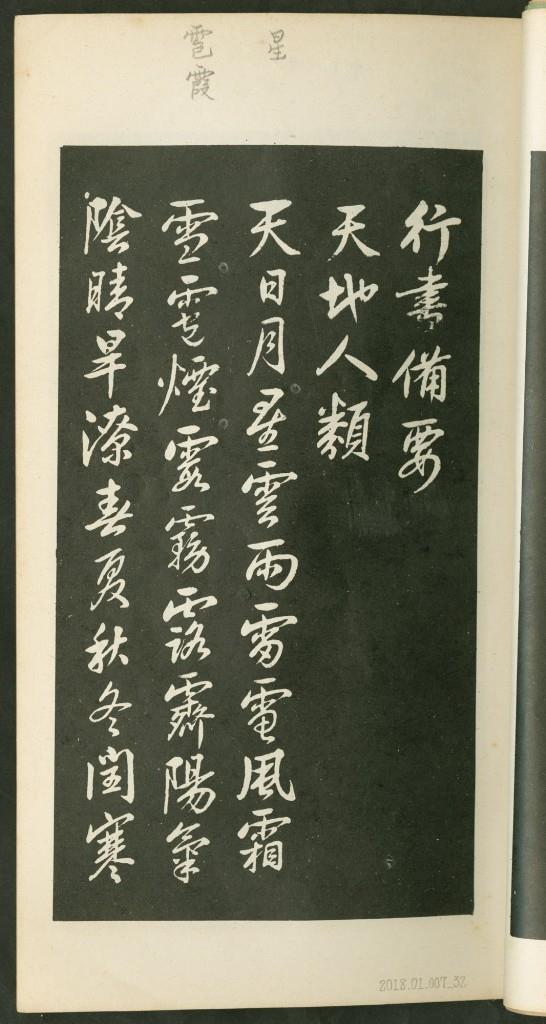 星
雹霞
行書備要
天地人類
天日月星雲雨雷電風霜
雪雹煙霞霧露霽陽氣
陰晴旱潦春夏秋冬閏寒
2018.01.007_32